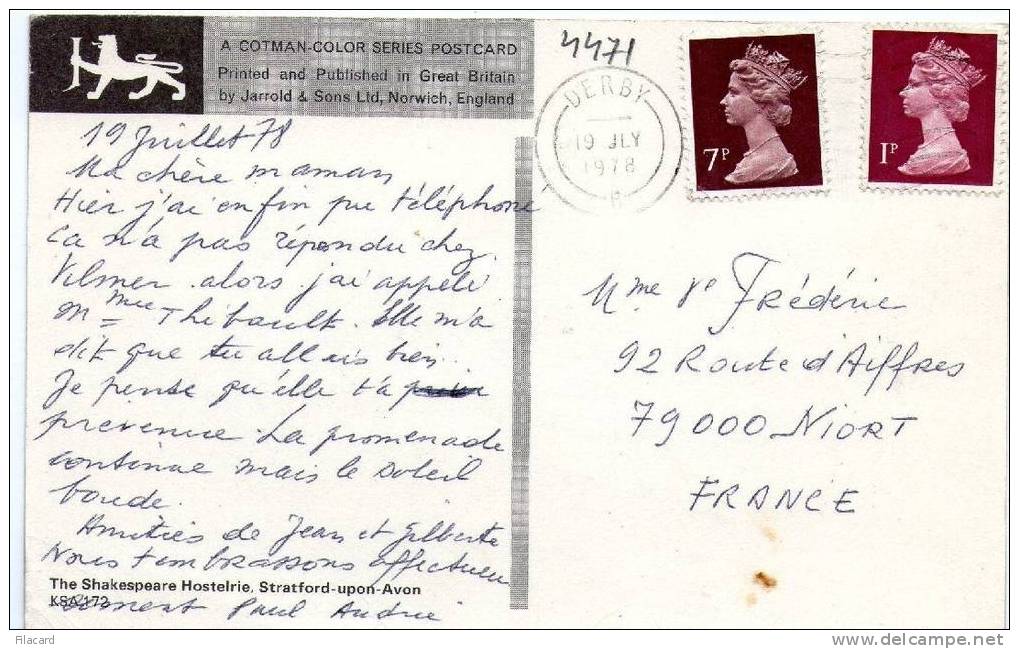 A COTMAN-COLOR SERIES POSTCARD
Printed and Published in Great Britain
by Jarrold & Sons Ltd, Norwich, England
19 Juillet 78
Ma chère maman
Hier j'ai enfin pu téléphone
Ça n'a pas répondu chez
Vilmer alors j'ai appelé
Mme Thibault. Elle m'a
dit que tu allais bien.
Je pense qu'elle t'a
prévenue. La promenade
continue mais le soleil
boude.
Amitiés de Jean et Gilberte
Nous t'embrassons affectueu
The Shakespeare Hostelrie, Stratford-upon-Avon
KSA172
sement Paul Andrée
4471
DERBY
19 JLY
1978
7P
1P
Mme Ve Frédéric
92 Route d'Aiffres
79000 NIORT
FRANCE
Filacard
http://filacard.delcampe.net